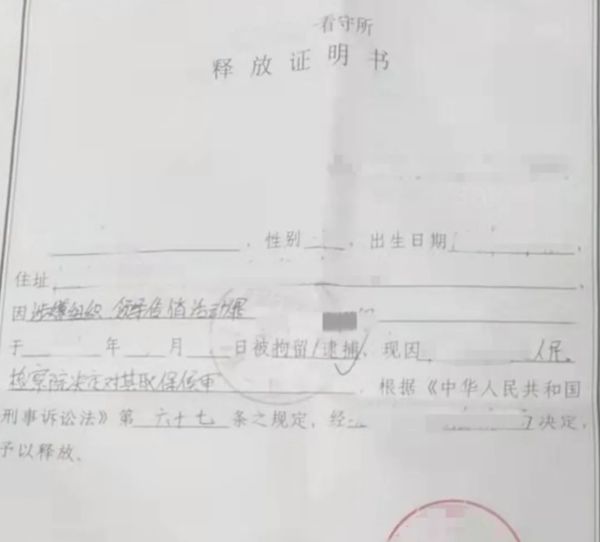 看守所
释放证明书
，性别 ，出生日期 ，
住址
因涉嫌组织 领导传销活动罪
于 年 月 日被拘留/逮捕、现因 人民
检察院决定对其取保候审 ，根据《中华人民共和国
刑事诉讼法》第 六十七 条之规定，经 决定，
予以释放。